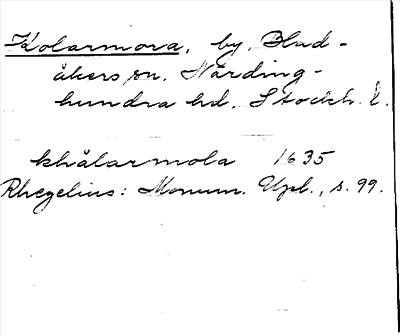 Kolarmora, by, Blad-
åkers sn. Närding-
hundra hd. Stockh. l.
khålarmola 1635
Rhezelius: Monum. Upl., s. 99.